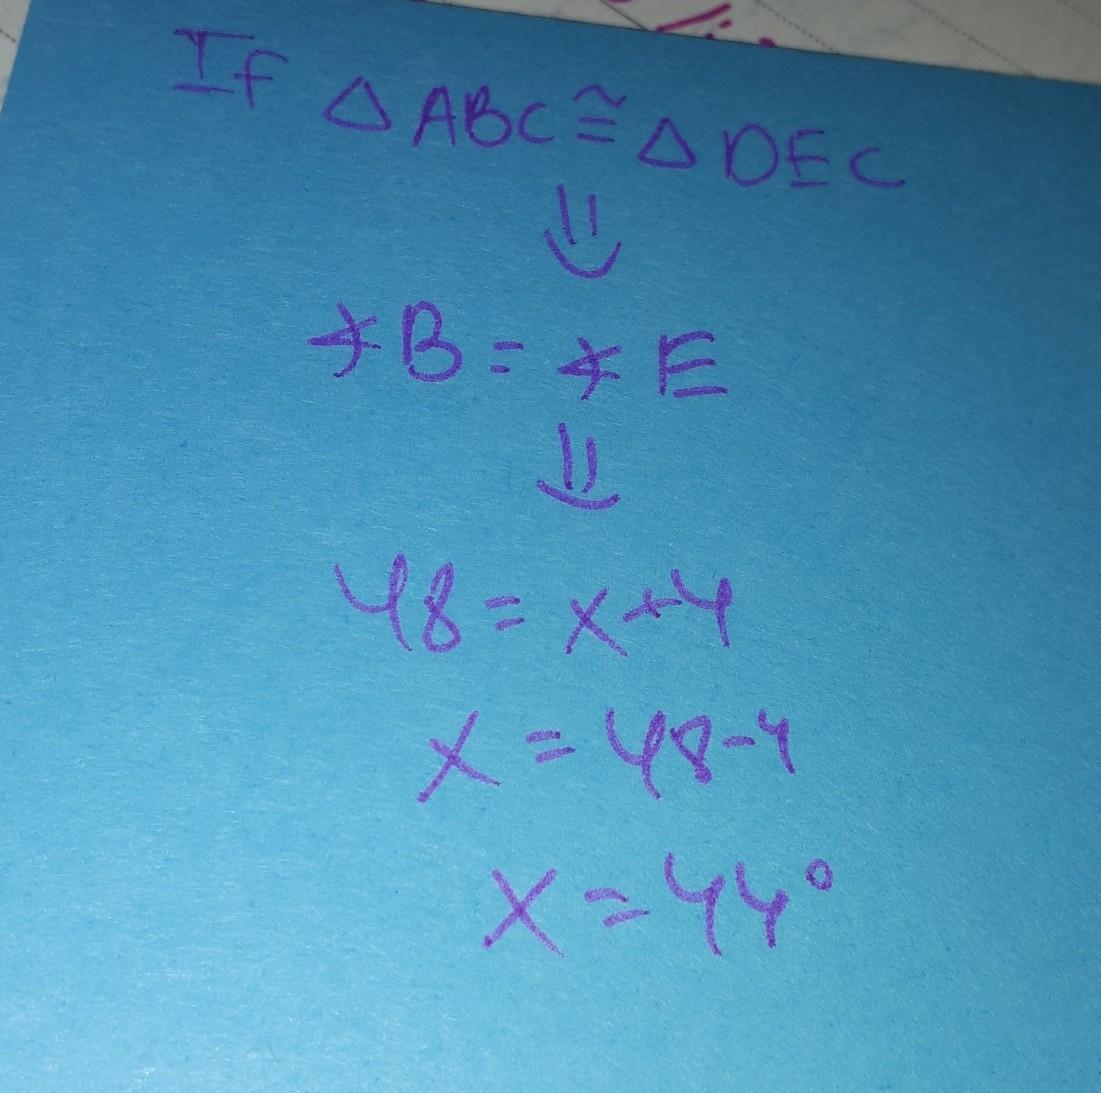 If △ ABC ≅ △ DEC
⇓
∢B = ∢E
⇓
48 = x+4
x = 48-4
x = 44°